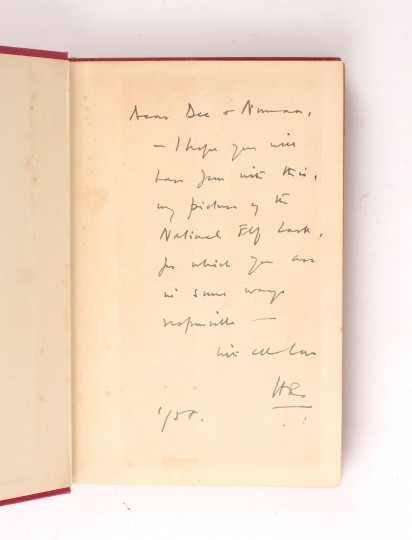 Dear Dee & Norman,
— I hope you will
have fun with this,
my picture of the
National Elf Bank,
for which you are
in some ways
responsible —
with all love
1/58.